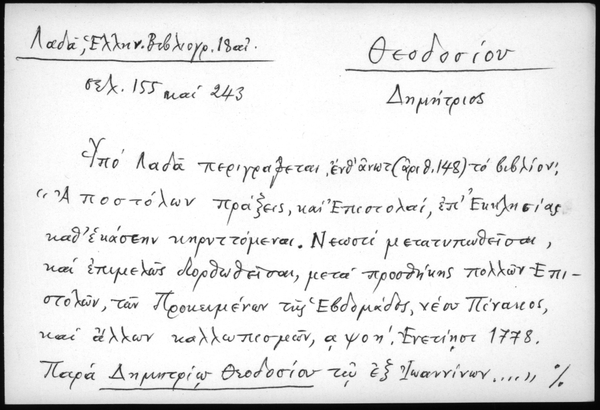 Λαδᾶ, Ἑλλην. Βιβλιογρ. 18 αἰ.
Θεοδοσίου
σελ. 155 καί 243
Δημήτριος
Ὑπό Λαδᾶ περιγράφεται, ἐνθ' ἄνωτ (ἀριθ. 148) τό βιβλίον;
"Ἀποστόλων πράξεις, καί Ἐπιστολαί, ἐπ' Ἐκκλησίας
καθ' ἑκάστην κηρυττόμεναι. Νεωστί μετατυπωθεῖσαι,
καί ἐπιμελῶς διορθωθεῖσαι, μετά προσθήκης πολλῶν Ἐπι-
στολῶν, τῶν Προκειμένων τῆς Ἑβδομάδος, νέου Πίνακος,
καί ἄλλων καλλωπισμῶν, αψοή. Ἐνετίῃσι 1778.
Παρά Δημητρίῳ Θεοδοσίου τῷ ἐξ Ἰωαννίνων....." %